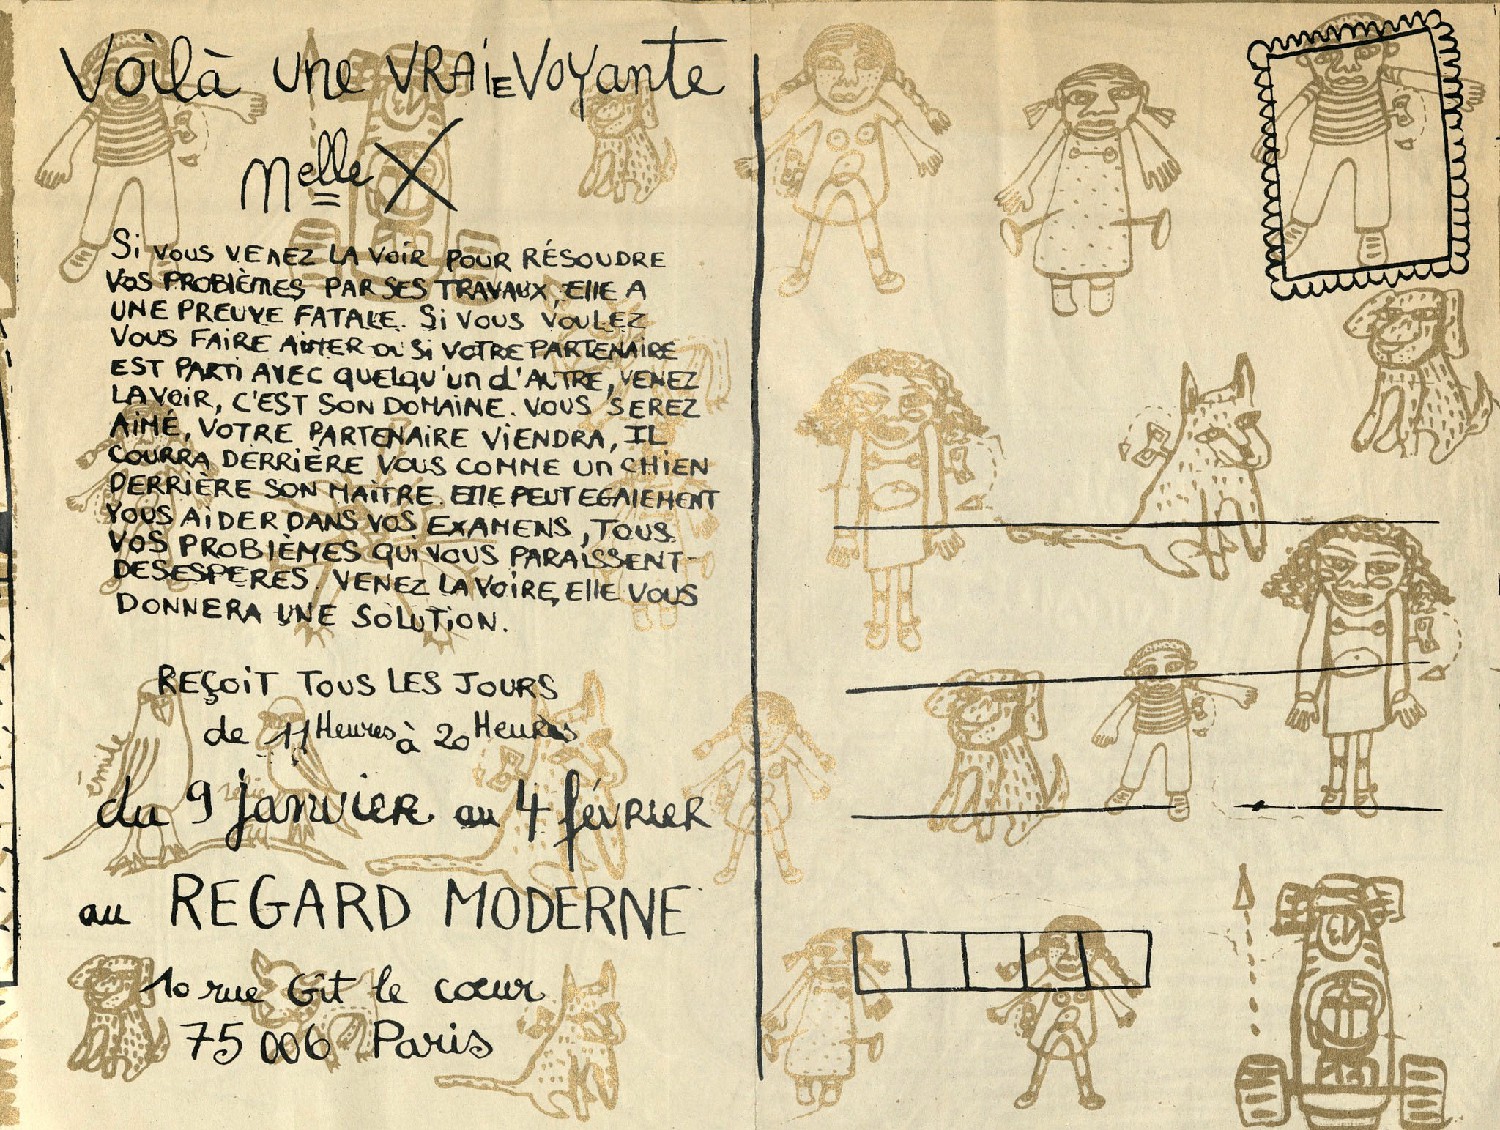 Voilà une VRAIE VOYante
Melle X
Si VOUS VENEZ LA VOIR POUR RÉSOUDRE
VOS PROBLÈMES PAR SES TRAVAUX, Elle A
UNE PREUVE FATALE. Si VOUS VOULEZ
VOUS FAIRE AIMER OU Si VOTRE PARTENAIRE
EST PARTI AVEC QUELQU'un d'AUTRE, VENEZ
LA VOIR, C'EST SON DOMAINE. VOUS SEREZ
AIMÉ, VOTRE PARTENAIRE VIENDRA, IL
COURRA DERRIÈRE VOUS COMME Un CHIEN
DERRIÈRE SON MAÎTRE. ElLE PEUT EGALEMENT
VOUS AIDER DANS VOS EXAMENS, TOUS
VOS PROBLÈMES QUI VOUS PARAISSENT
DESESPERES. VENEZ LA VOIRE, ElLE VOUS
DONNERA UNE SOLUTION.
REÇOIT TOUS LES JOURS
de 11 Heures à 20 Heures
émile
du 9 janvier au 4 février
au REGARD MODERNE
10 rue Gît le cœur
75006 Paris